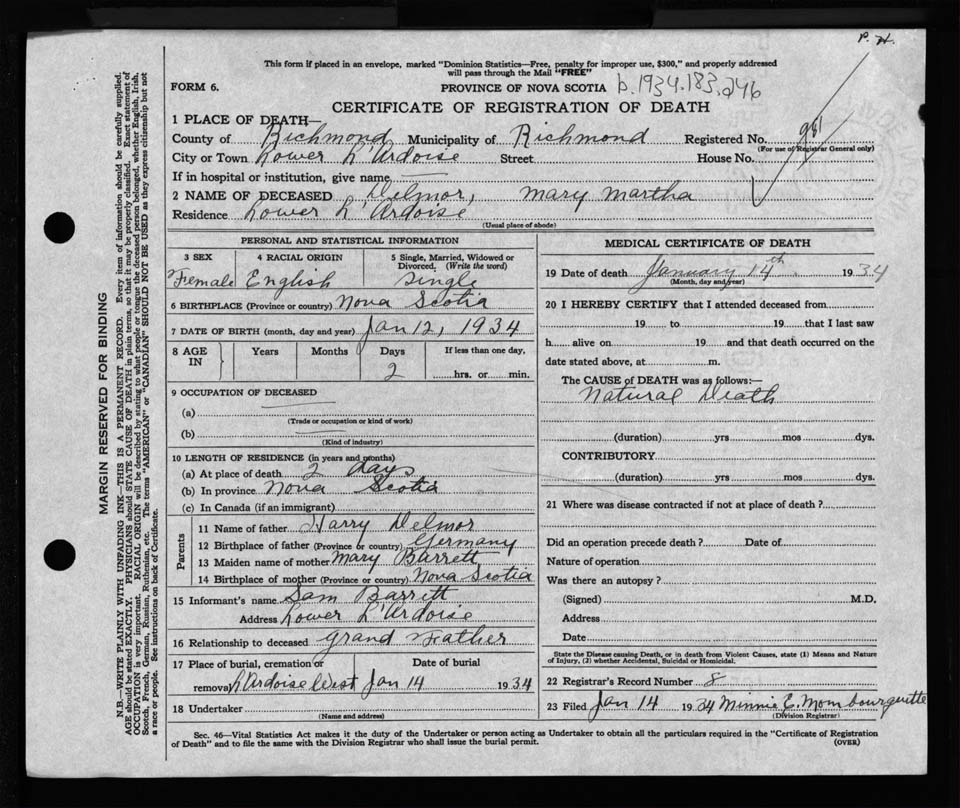 P. H.
This form if placed in an envelope, marked "Dominion Statistics—Free, penalty for improper use, $300," and properly addressed
will pass through the Mail "FREE"
FORM 6.
PROVINCE OF NOVA SCOTIA
b.1934.183.246
CERTIFICATE OF REGISTRATION OF DEATH
1 PLACE OF DEATH—
County of Richmond Municipality of Richmond Registered No. 981
(For use of Registrar General only)
City or Town Lower L'Ardoise Street House No.
If in hospital or institution, give name
2 NAME OF DECEASED Delmor, Mary Martha
Residence Lower L'Ardoise
(Usual place of abode)
PERSONAL AND STATISTICAL INFORMATION
3 SEX 4 RACIAL ORIGIN 5 Single, Married, Widowed or Divorced. (Write the word)
Female English Single
6 BIRTHPLACE (Province or country) Nova Scotia
7 DATE OF BIRTH (month, day and year) Jan 12, 1934
8 AGE IN Years Months Days If less than one day,
2 hrs. or min.
9 OCCUPATION OF DECEASED
(a)
(Trade or occupation or kind of work)
(b)
(Kind of industry)
10 LENGTH OF RESIDENCE (in years and months)
(a) At place of death 2 days
(b) In province Nova Scotia
(c) In Canada (if an immigrant)
Parents
11 Name of father Harry Delmor
12 Birthplace of father (Province or country) Germany
13 Maiden name of mother Mary Barrett
14 Birthplace of mother (Province or country) Nova Scotia
15 Informant's name Sam Barrett
Address Lower L'Ardoise
16 Relationship to deceased grand Father
17 Place of burial, cremation or Date of burial
removal L'Ardoise West Jan 14 1934
18 Undertaker
(Name and address)
MEDICAL CERTIFICATE OF DEATH
19 Date of death January 14th 1934
(Month, day and year)
20 I HEREBY CERTIFY that I attended deceased from
19 to 19 that I last saw
h alive on 19 and that death occurred on the
date stated above, at m.
The CAUSE of DEATH was as follows:—
Natural Death
(duration) yrs mos dys.
CONTRIBUTORY
(duration) yrs mos dys.
21 Where was disease contracted if not at place of death?
Did an operation precede death? Date of
Nature of operation
Was there an autopsy?
(Signed) M.D.
Address
Date
State the Disease causing Death, or in death from Violent Causes, state (1) Means and Nature
of Injury, (2) whether Accidental, Suicidal or Homicidal.
22 Registrar's Record Number 8
23 Filed Jan 14 1934 Minnie E. Mombourquette
(Division Registrar)
Sec. 46—Vital Statistics Act makes it the duty of the Undertaker or person acting as Undertaker to obtain all the particulars required in the "Certificate of Registration
of Death" and to file the same with the Division Registrar who shall issue the burial permit.
(OVER)
MARGIN RESERVED FOR BINDING
N.B.—WRITE PLAINLY WITH UNFADING INK—THIS IS A PERMANENT RECORD. Every item of information should be carefully supplied.
AGE should be stated EXACTLY. PHYSICIANS should STATE CAUSE OF DEATH in plain terms, so that it may be properly classified. Exact statement of
OCCUPATION is very important. RACIAL ORIGIN will be described by stating to what people or tongue the deceased person belonged, whether English, Irish,
Scotch, French, German, Russian, Ruthenian, etc. The terms "AMERICAN" or "CANADIAN" SHOULD NOT BE USED as they express citizenship but not
a race or people. See instructions on back of Certificate.